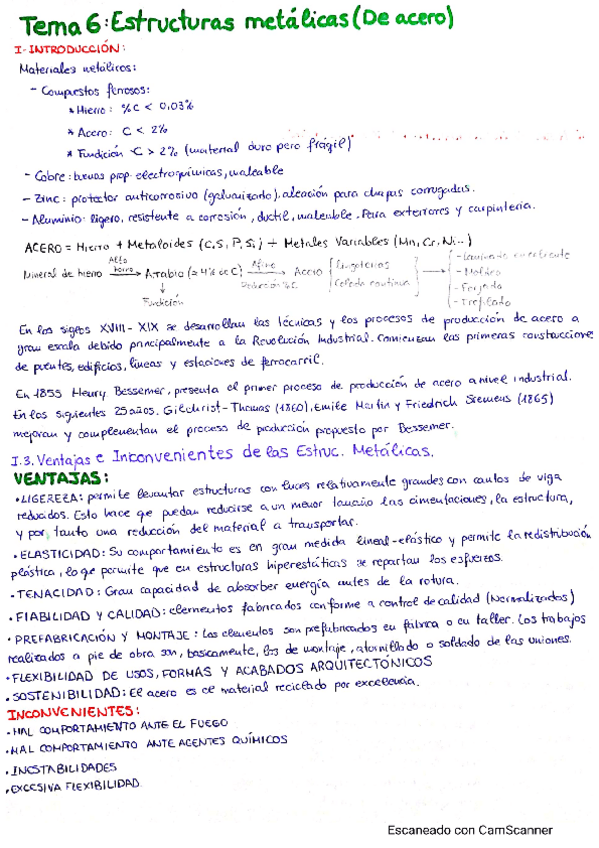 Tema 6: Estructuras metálicas (De acero)
I- INTRODUCCIÓN:
Materiales metálicos:
- Compuestos ferrosos:
* Hierro: %C < 0,03%
* Acero: C < 2%
* Fundición C > 2% (material duro pero frágil)
- Cobre: buenas prop. electroquímicas, maleable
- Zinc: protector anticorrosivo (galvanizado), aleación para chapas corrugadas.
- Aluminio: ligero, resistente a corrosión, ductil, maleable. Para exteriores y carpintería.
ACERO = Hierro + Metaloides (C, S, P, Si) + Metales Variables (Mn, Cr, Ni...)
Mineral de hierro Alto horno → Arrabio (≈ 4% de C) Afino Reducción %C → Acero { Lingoteras Colada continua → { - Laminado en caliente
- Moldeo
- Forjado
- Trefilado
↓ Fundición
En los siglos XVIII - XIX se desarrollan las técnicas y los procesos de producción de acero a
gran escala debido principalmente a la Revolución Industrial. Comienzan las primeras construcciones
de puentes, edificios, líneas y estaciones de ferrocarril.
En 1855 Henry Bessemer, presenta el primer proceso de producción de acero a nivel industrial.
En los siguientes 25 años. Gilchrist-Thomas (1860), Emile Martin y Friedrich Siemens (1865)
mejoran y complementan el proceso de producción propuesto por Bessemer.
I.3. Ventajas e Inconvenientes de las Estruc. Metálicas.
VENTAJAS:
• LIGEREZA: permite levantar estructuras con luces relativamente grandes con cantos de viga
reducidos. Esto hace que puedan reducirse a un menor tamaño las cimentaciones, la estructura,
y por tanto una reducción del material a transportar.
• ELASTICIDAD: Su comportamiento es en gran medida lineal-elástico y permite la redistribución
plástica, lo que permite que en estructuras hiperestáticas se repartan los esfuerzos.
• TENACIDAD: Gran capacidad de absorber energía antes de la rotura.
• FIABILIDAD Y CALIDAD: elementos fabricados conforme a control de calidad (Normalizados)
• PREFABRICACIÓN Y MONTAJE: Los elementos son prefabricados en fábrica o en taller. Los trabajos
realizados a pie de obra son, basicamente, los de montaje, atornillado o soldado de las uniones.
• FLEXIBILIDAD DE USOS, FORMAS Y ACABADOS ARQUITECTÓNICOS
• SOSTENIBILIDAD: El acero es el material reciclado por excelencia.
INCONVENIENTES:
• MAL COMPORTAMIENTO ANTE EL FUEGO
• MAL COMPORTAMIENTO ANTE AGENTES QUÍMICOS
• INESTABILIDADES
• EXCESIVA FLEXIBILIDAD.
Escaneado con CamScanner